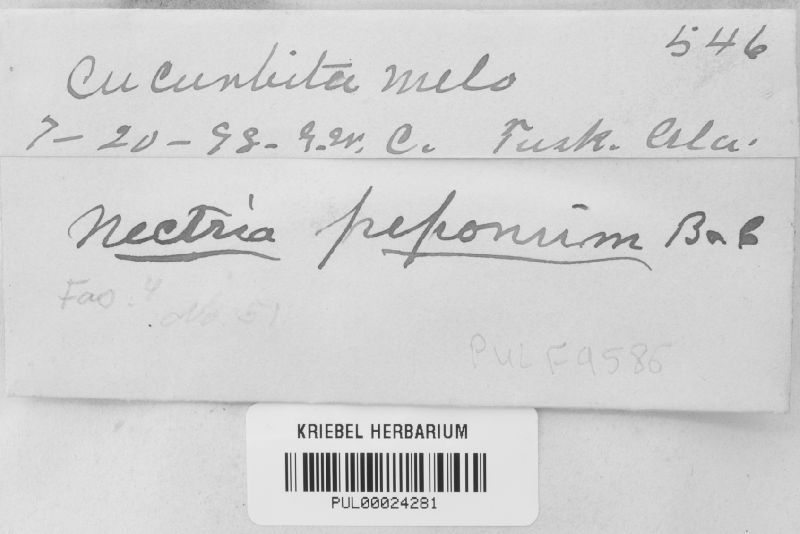 546
Cucurbita melo
7-20-98. G.W. C. Tusk. Ala.
Nectria peponum B & C
Fas. 4
No. 51
PUL F9585
KRIEBEL HERBARIUM
PUL00024281